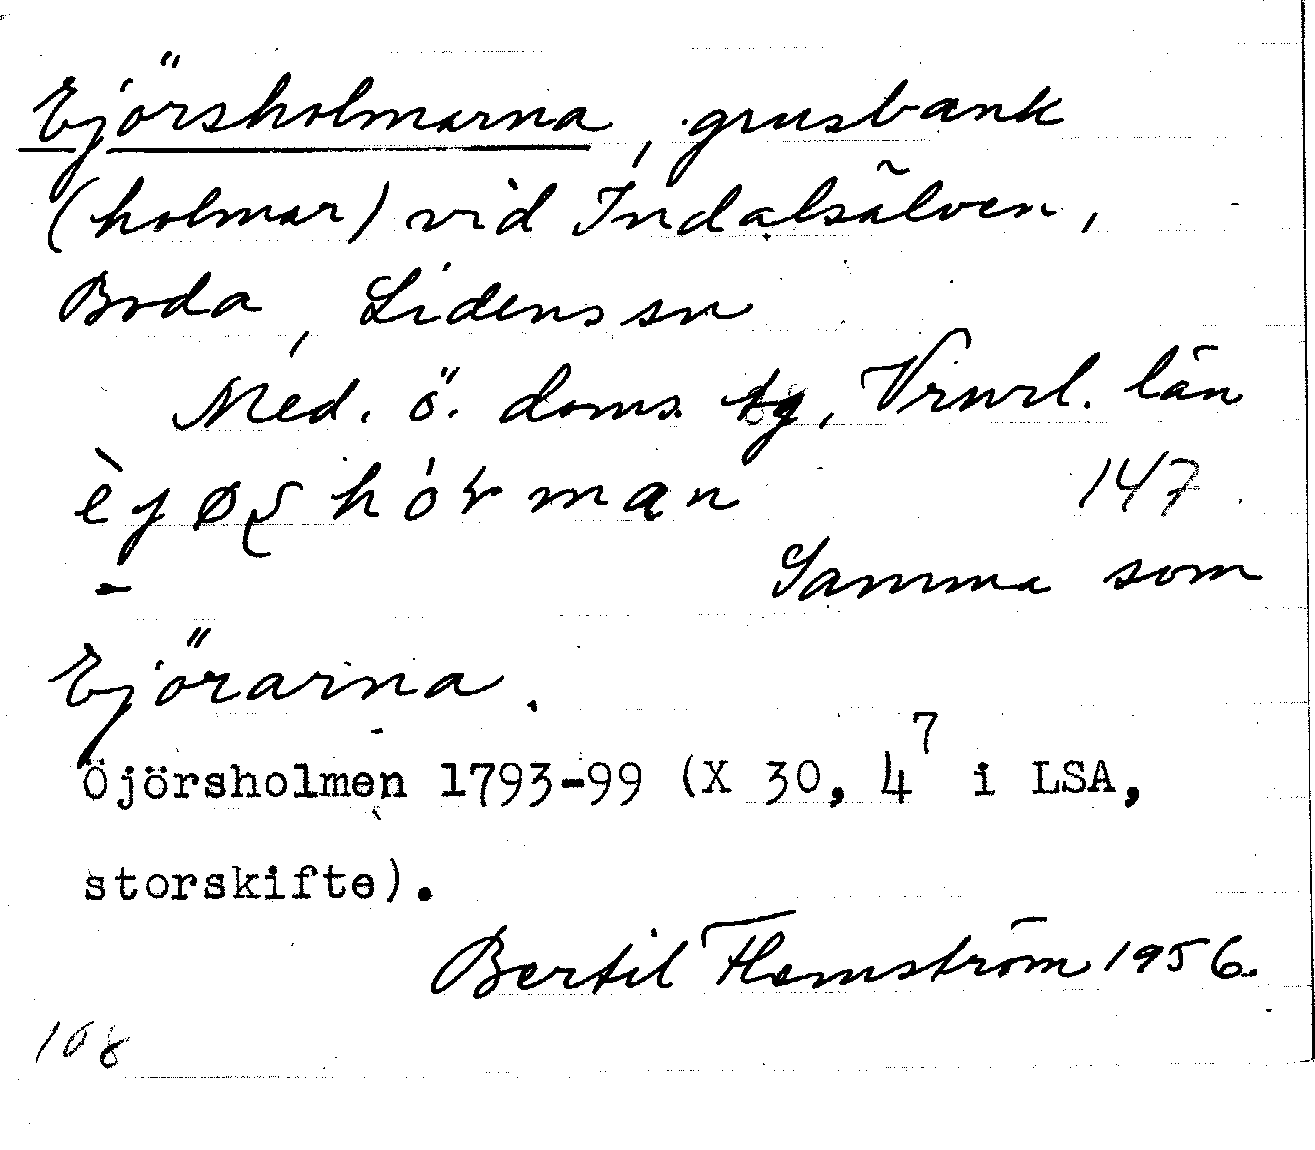 Ejörsholmarna, grusbank
(holmar) vid Indalsälven,
Boda, Lidens sn
Med. ö. doms tg, Vrnrl. län
147
Samma som
Ejörarna.
Öjörsholmen 1793-99 (X 30, 4⁷ i LSA,
storskifte).
Bertil Flemström 1956.
108